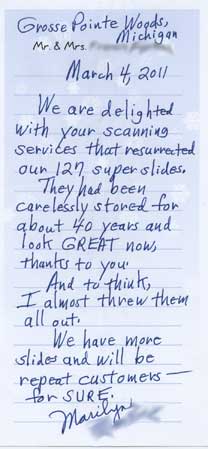 Grosse Pointe Woods,
Michigan
Mr. & Mrs.
March 4, 2011
We are delighted
with your scanning
services that resurrected
our 127 super slides.
They had been
carelessly stored for
about 40 years and
look GREAT now,
thanks to you.
And to think,
I almost threw them
all out.
We have more
slides and will be
repeat customers —
for SURE.
Marilyn